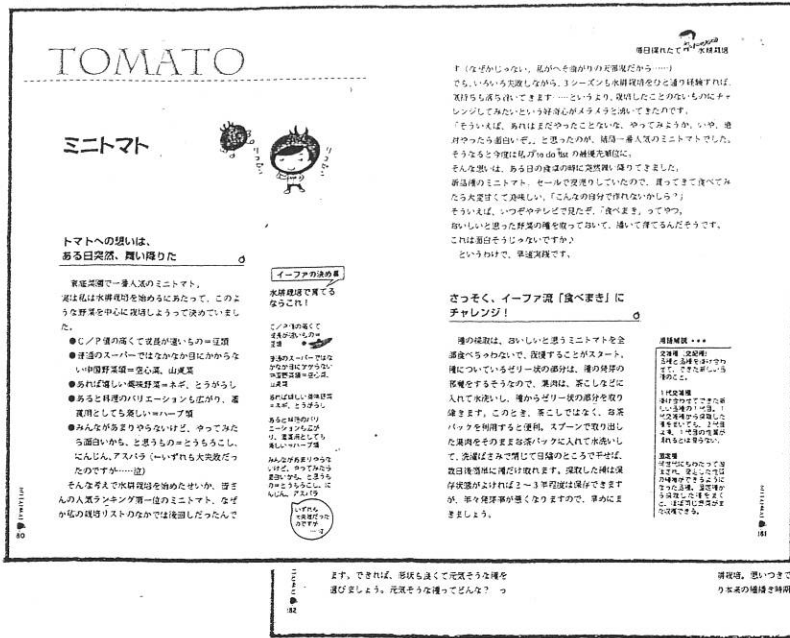 TOMATO
ミニトマト
トマトへの想いは、
ある日突然、舞い降りた
家庭菜園で一番人気のミニトマト。
実は私は水耕栽培を始めるにあたって、このよ
うな野菜を中心に栽培しようって決めていまし
た。
●C/P値の高くて成長が速いもの=豆類
●普通のスーパーではなかなか目にかからな
い中国野菜類=空心菜、山東菜
●あれば嬉しい薬味野菜=ネギ、とうがらし
●あると料理のバリエーションも広がり、鑑
賞用としても楽しい=ハーブ類
●みんながあまりやらないけど、やってみた
ら面白いかも、と思うもの=とうもろこし、
にんじん、アスパラ(←いずれも大失敗だっ
たのですが……泣)
そんな考えで水耕栽培を始めたせいか、皆さ
んの人気ランキング第一位のミニトマト、なぜ
か私の栽培リストのなかでは後回しだったんで
イーファの決め事
水耕栽培で育てる
ならこれ!
C/P値の高くて
成長が速いもの=
豆類
普通のスーパーではな
かなか目にかからない
中国野菜類=空心菜、
山東菜
あれば嬉しい薬味野菜
=ネギ、とうがらし
あると料理のバリ
エーションも広が
り、鑑賞用としても
楽しい=ハーブ類
みんながあまりやらな
いけど、やってみたら
面白いかも、と思うも
の=とうもろこし、に
んじん、アスパラ
いずれも
大失敗だった
のですが
……泣
180
毎日採れたて 水耕栽培
す(なぜかじゃない、私がへそ曲がりの天邪鬼だから……)
でも、いろいろ失敗しながら、3シーズンも水耕栽培をひと通り経験すれば、
気持ちも落ち着いてきます……というより、栽培したことのないものにチャ
レンジしてみたいという好奇心がメラメラと湧いてきたのです。
「そういえば、あれはまだやったことないな、やってみようか、いや、絶
対やったら面白いぞ。」と思ったのが、結局一番人気のミニトマトでした。
そうなると今度は私のto do listの最優先順位に。
そんな思いは、ある日の食卓の時に突然舞い降りてきました。
新品種のミニトマト、セールで安売りしていたので、買ってきて食べてみ
たら大変甘くて美味しい。「こんなの自分で作れないかしら?」
そういえば、いつぞやテレビで見たぞ、「食べまき」ってやつ。
おいしいと思った野菜の種を取っておいて、播いて育てるんだそうです。
これは面白そうじゃないですか♪
というわけで、早速実践です。
さっそく、イーファ流「食べまき」に
チャレンジ!
種の採取は、おいしいと思うミニトマトを全
部食べちゃわないで、我慢することがスタート。
種についているゼリー状の部分は、種の発芽の
邪魔をするそうなので、果肉は、茶こしなどに
入れて水洗いし、種からゼリー状の部分を取り
除きます。このとき、茶こしではなく、お茶
パックを利用すると便利。スプーンで取り出し
た果肉をそのままお茶パックに入れて水洗いし
て、洗濯ばさみで閉じて日陰のところで干せば、
数日後簡単に種だけ取れます。採取した種は保
存状態がよければ2~3年程度は保存できます
が、年々発芽率が悪くなりますので、早めにま
きましょう。
用語解説
交雑種(交配種)
品種と品種を掛け合わ
せて、できた新しい品
種のこと。
1代交雑種
掛け合わせてできた新
しい品種の1代目。
固定種
181
182
ます。できれば、形状も良くて元気そうな種を
選びましょう。元気そうな種ってどんな? っ
耕栽培。思いつきで
り本来の種播き時期